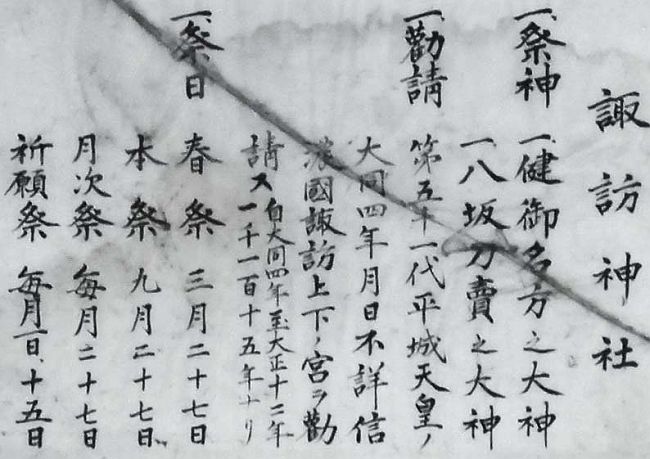 諏訪神社
一、祭神 一、健御名方之大神
一、八坂刀賣之大神
一、勸請 第五十一代平城天皇ノ
大同四年月日不詳信
濃國諏訪上下ノ宮ヲ勸
請ス 自大同四年至大正十二年
一千一百十五年ナリ
一、祭日 春祭 三月二十七日
本祭 九月二十七日
月次祭 每月二十七日
祈願祭 每月一日、十五日